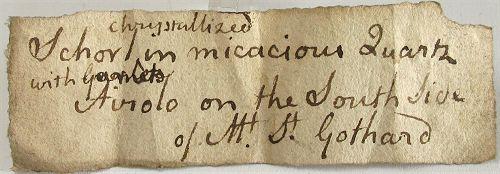 chrysstallized
Schorl in micacious Quartz
with Garnets
Airolo on the South Side
of Mt. St. Gothard